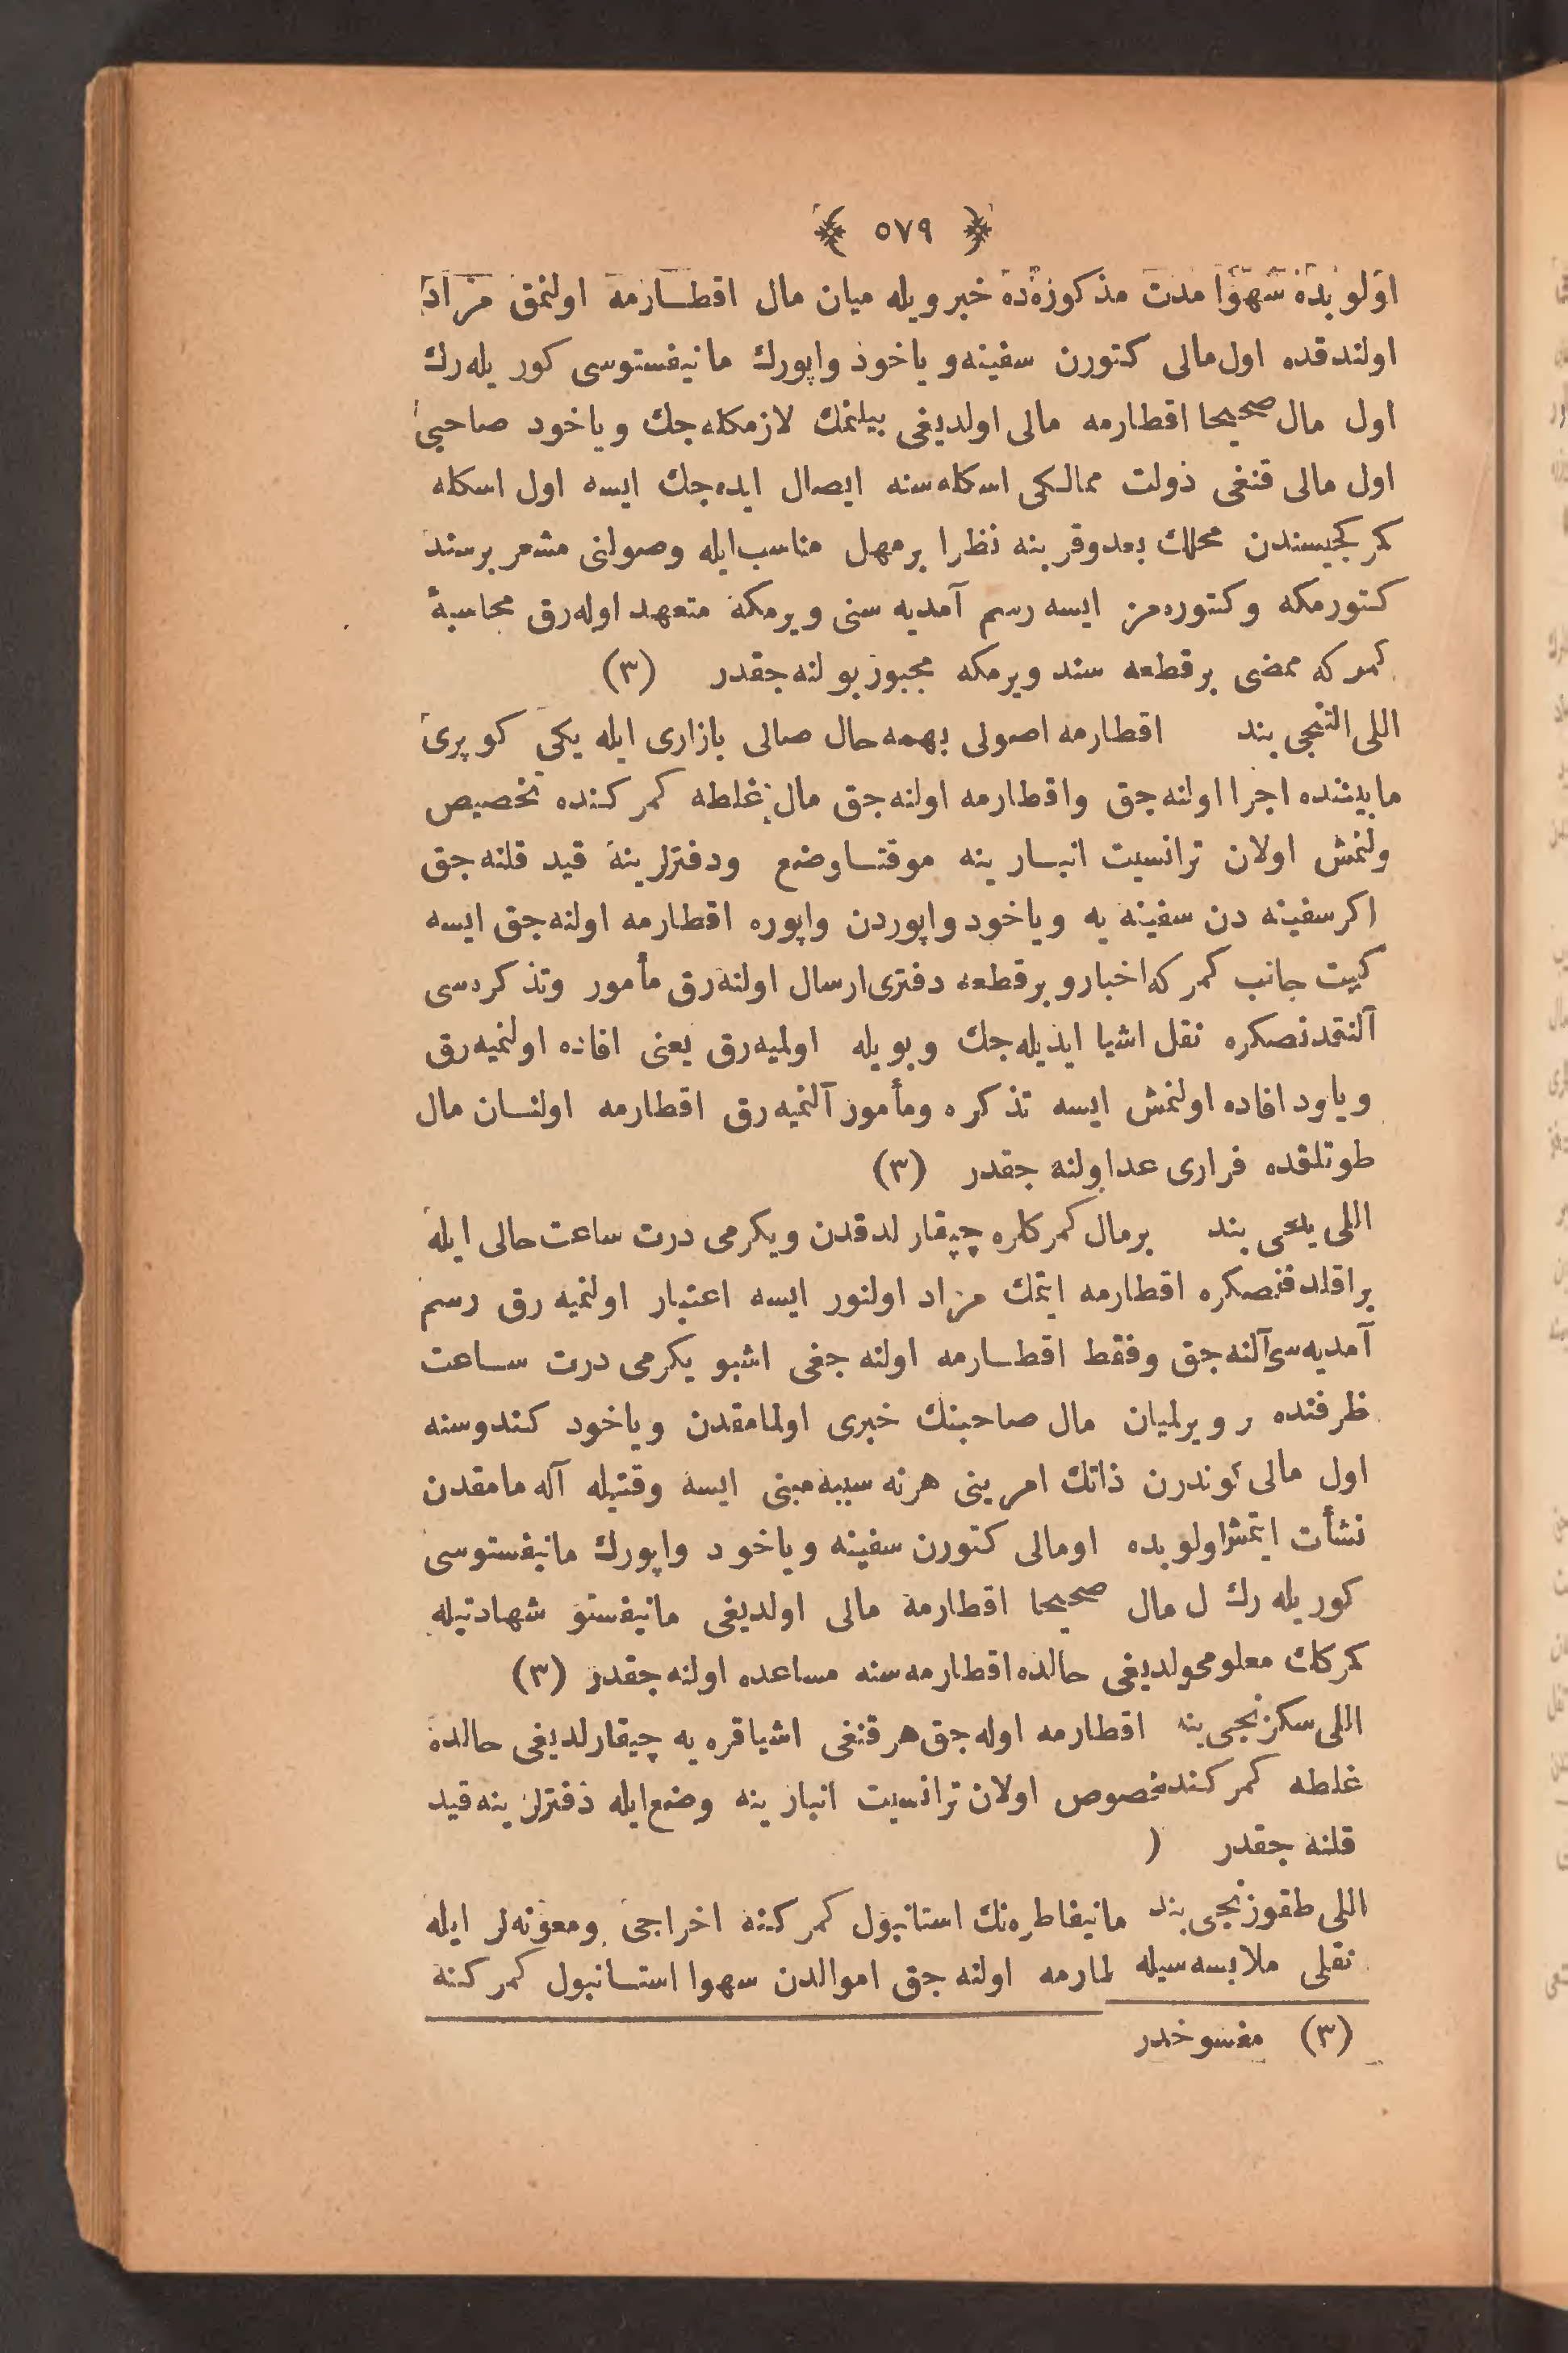 ٥٧٩
اولوبده سهوا مدت مذكورهده خبر ويله ميان مال اقطارمه اولنمق مراد
اولندقده اول مالى كتورن سفينه و ياخود واپورك مانيفستوسى كوريله رك
اول مال صحيحا اقطارمه مالى اولديغى بيلنمك لازمكله جك و ياخود صاحبى
اول مالى قنغى دولت ممالكى اسكله سنه ايصال ايده جك ايسه اول اسكله
كمركجيسندن محلك بعد وقربنه نظرا بر مهل مناسب ايله وصولنى مشعر بر سند
كتورمكه و كتوره مز ايسه رسم آمديه سنى ويرمكه متعهد اوله رق محاسبۀ
كمركه ممضى بر قطعه سند ويرمكه مجبور بولنه جقدر (٣)
اللى التنجى بند اقطارمه اصولى بهمه حال صالى بازارى ايله يكى كوپرى
مابيننده اجرا اولنه جق واقطارمه اولنه جق مال غلطه كمركنده تخصيص
ولنمش اولان ترانسيت انبارينه موقتا وضع ودفترلرينه قيد قلنه جق
اكر سفينه دن سفينه يه و ياخود واپوردن واپوره اقطارمه اولنه جق ايسه
كيت جانب كمركه اخبار و بر قطعه دفترى ارسال اولنه رق مأمور وتذكره سى
آلنقدنصكره نقل اشيا ايديله جك و بويله اولميه رق يعنى افاده اولنميه رق
و ياود افاده اولنمش ايسه تذكره ومأمور آلنميه رق اقطارمه اولنان مال
طوتلقده فرارى عد اولنه جقدر (٣)
اللى يدنجى بند بر مال كمركلره چيقارلدقدن و يكرمى درت ساعت حالى ايله
براقلدقنصكره اقطارمه ايتمك مراد اولنور ايسه اعتبار اولنميه رق رسم
آمديه سى آلنه جق وفقط اقطارمه اولنه جغى اشبو يكرمى درت ساعت
ظرفنده ر ويرلميان مال صاحبنك خبرى اولمامقدن و ياخود كندوسنه
اول مالى كوندرن ذاتك امرينى هرنه سببه مبنى ايسه وقتيله آله مامقدن
نشأت ايتمش اولوبده اومالى كتورن سفينه و ياخود واپورك مانيفستوسى
كوريله رك ل مال صحيحا اقطارمه مالى اولديغى مانيفستو شهادتيله
كمركك معلومى اولديغى حالده اقطارمه سنه مساعده اولنه جقدر (٣)
اللى سكزنجى بند اقطارمه اوله جق هر قنغى اشيا قره يه چيقارلديغى حالده
غلطه كمركنده مخصوص اولان ترانسيت انبارينه وضع ايله دفترلرينه قيد
قلنه جقدر (
اللى طقوزنجى بند مانيفاطره نك استانبول كمركنه اخراجى ومعونه لر ايله
نقلى ملابسه سيله لمارمه اولنه جق اموالدن سهوا استانبول كمركنه
(٣) مفسوخدر